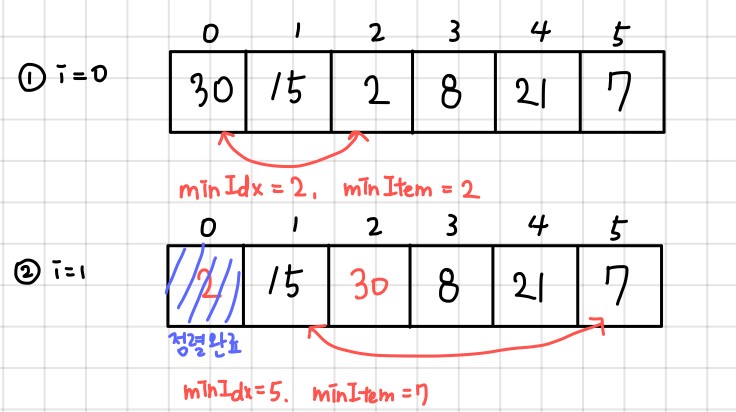 0 1 2 3 4 5
① i=0 30 15 2 8 21 7
minIdx = 2, minItem = 2
0 1 2 3 4 5
② i=1 2 15 30 8 21 7
정렬완료
minIdx=5. minItem=7